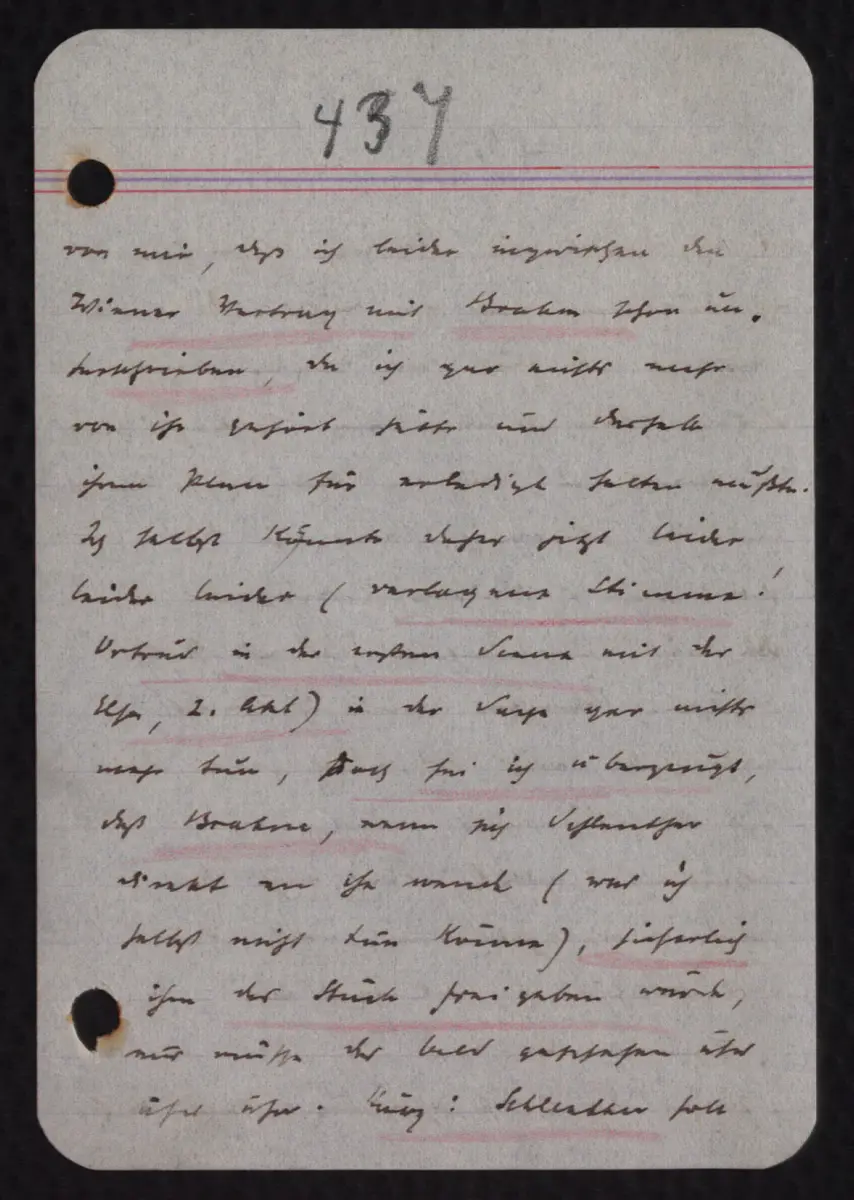 437
von mir, daß ich leider inzwischen den
Wiener Vertrag mit Brahm schon un-
terschrieben, da ich gar nichts mehr
von ihr gehört hätte und deshalb
ihren Plan für erledigt halten müßte.
Ich selbst könnte daher jetzt leider
leider leider (verlogene Stimme!
Ortrud in der ersten Scene mit der
Elsa, 2. Akt) in der Sache gar nichts
mehr tun, doch sei ich überzeugt,
daß Brahm, wenn sich Schlenther
direkt an ihn wende (was ich
selbst nicht tun könne), sicherlich
ihm das Stück freigeben würde,
nur müsse das bald geschehen
Kurz: Schlenther soll